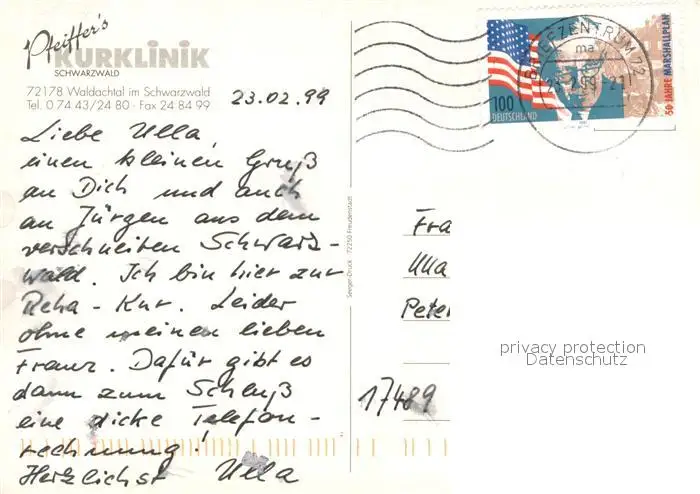 Pfeiffer's
KURKLINIK
SCHWARZWALD
72178 Waldachtal im Schwarzwald
Tel. 0 74 43/24 80 · Fax 24 84 99
23.02.99
Liebe Ulla,
einen kleinen Gruß
an Dich und auch
an Jürgen aus dem
verschneiten Schwarz-
wald. Ich bin hier zur
Reha-Kur. Leider
ohne meinen lieben
Franz. Dafür gibt es
dann zum Schluß
eine dicke Telefon-
rechnung!
Herzlichst Ulla
Seeger-Druck 72250 Freudenstadt
BRIEFZENTRUM 72
ma
100
DEUTSCHLAND
50 JAHRE MARSHALLPLAN
Fra
Ulla
Peter
17489
privacy protection
Datenschutz